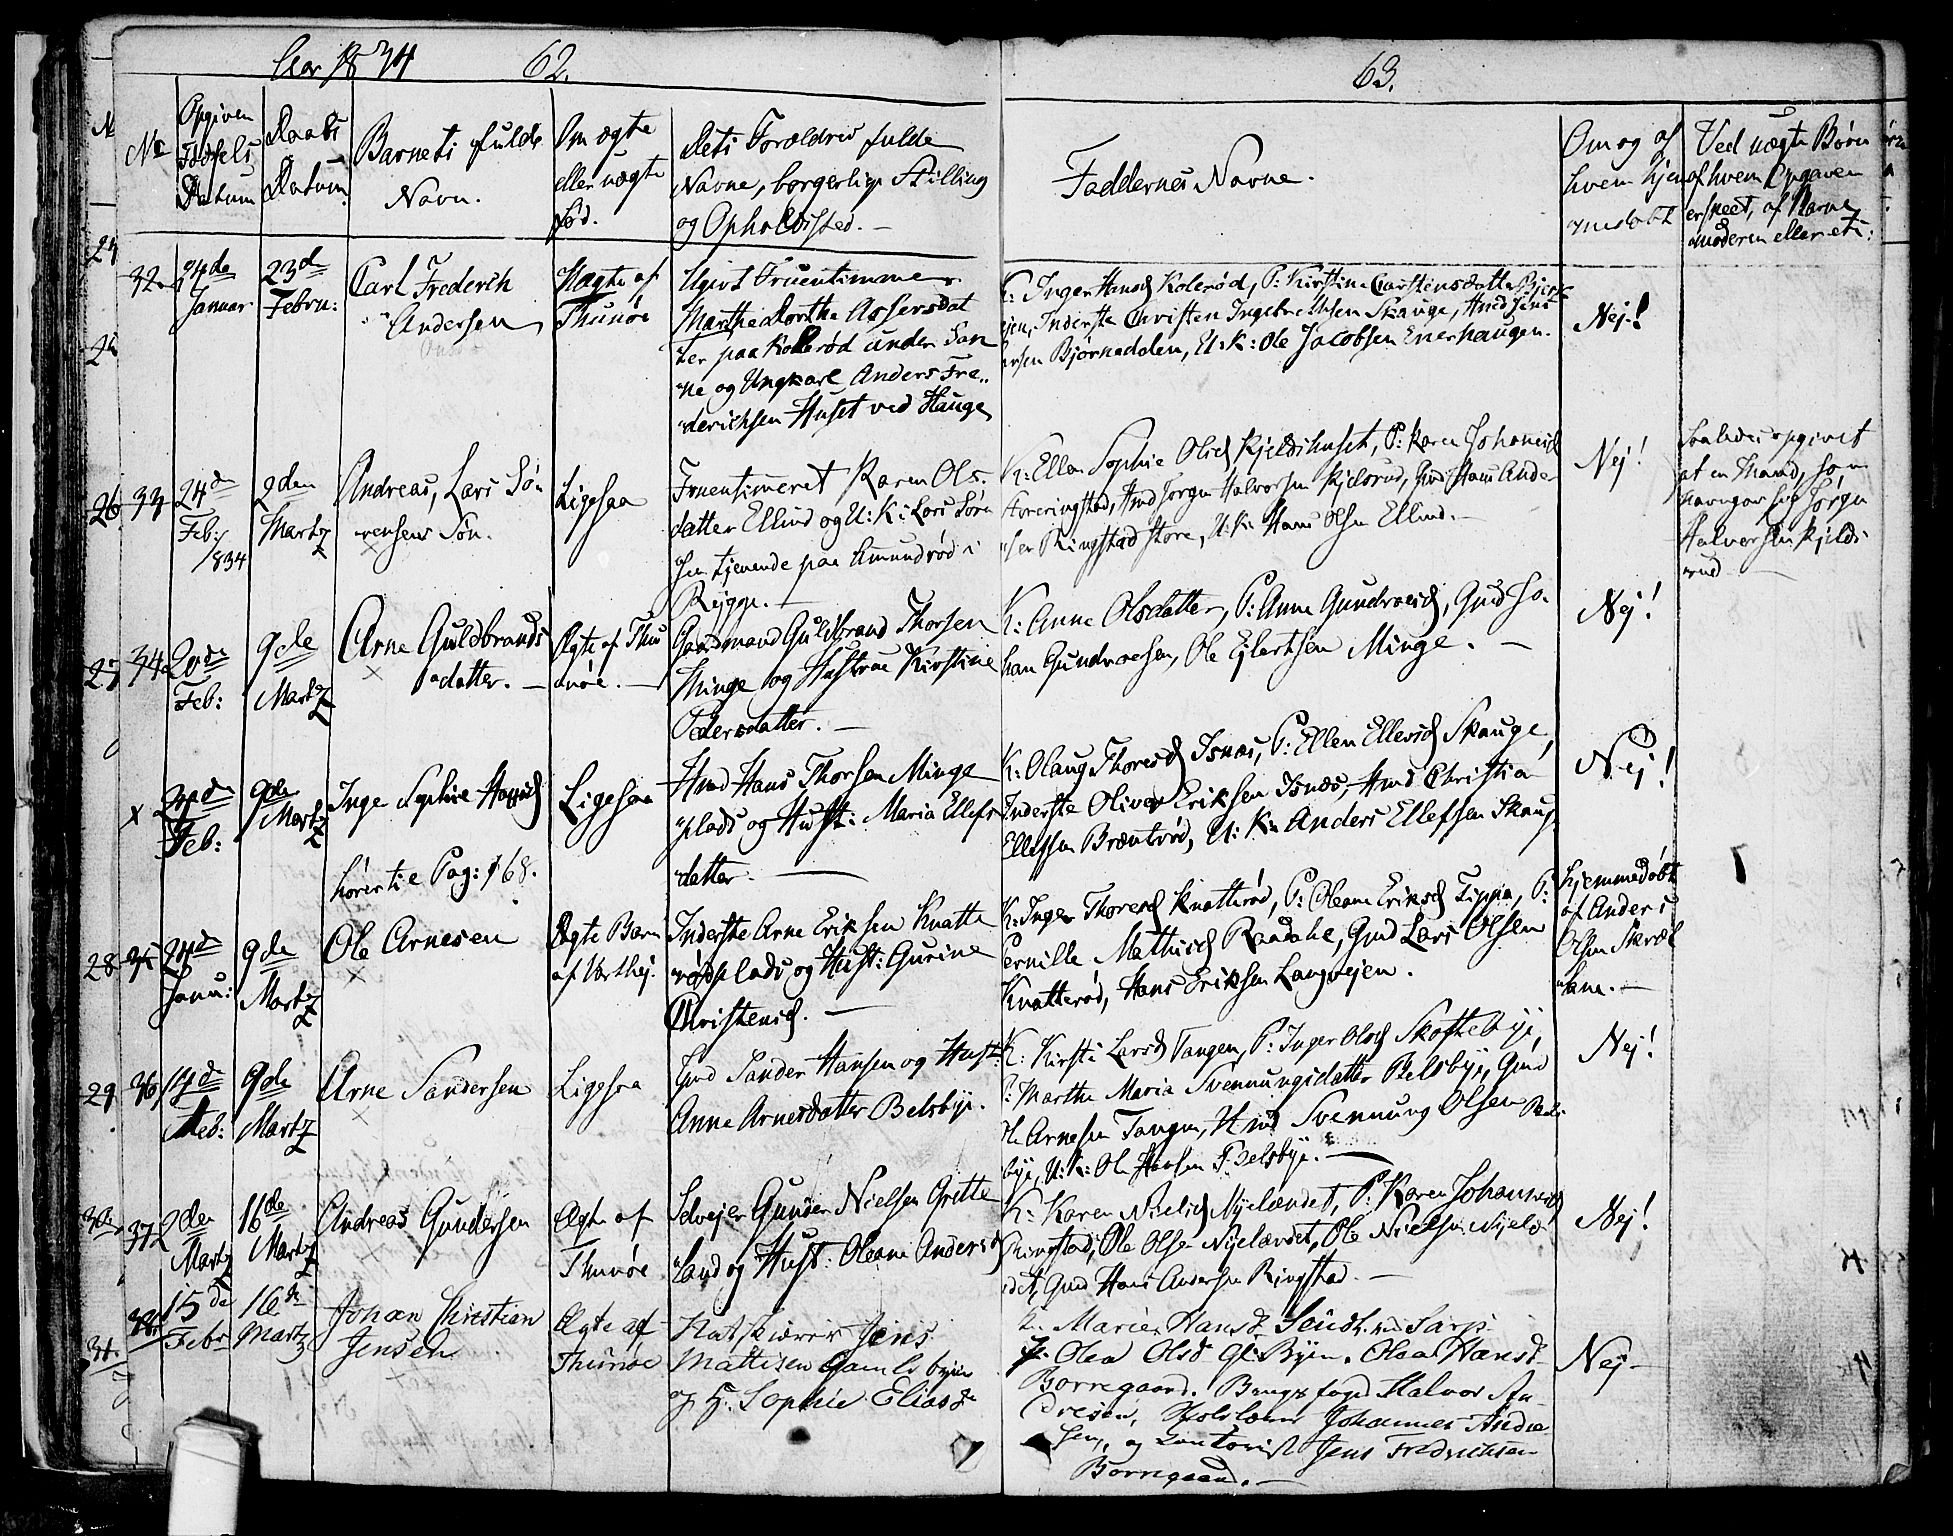 Aar 1834
62.
63.
No
Opgiven
Fødsels
Datum
Daabs
Datum.
Barnets fulde
Navn.
Om ægte
eller uægte
fød.
Dets Forældres fulde
Navne, borgerlige Stilling
og Opholdssted. —
Faddernes Navne.
Om og af
hvem hjem
medøbt
Ved uægte Børn
af hvem Opgaven
er skeet, af Barne
moderen eller
32.
24de
Januar
23de
Febru:
Carl Frederch
Andersen
Uægte af
Thunøe
Ugivt Fruentimmer
Marthe Dorthe Assersdat
ter paa Kolerød under San
ne og Ungkarl Anders Fre„
derichsen Huset ved Hauge
K: Inger Hansd Kolerød, P: Kirstine Carstensdatter
Inderste Christen Ingebrethsen Skauge, Hmd Jens
Bjørnedalen, U: K: Ole Jacobsen Enerhaugen.
Nej!
26
33
24de
Feb:
/834
2den
Martz
Andreas, Lars Sø„
rensens Søn.
Ligesaa
Fruentimeret Karen Ols„
datter Ellind og U: K: Lars Søren
sen tjenende paa Amundrød i
Reygge. —
K: Ellen Sophie Olsd Kjeldshuset, P: Karen Johannesd
Hmd Jørgen Halvorsen Kjelsrud, Gmd Hans Ander
sen Ringstad store, U: K: Hans Olsen Ellind. —
Nej!
Saaledes opgivet
at en Mand, som
navngav sig Jørgen
Halvorsen Kjelds
rud —
27
34
Feb:
9de
Martz
Arne Guldbrands
datter. —
Ægte af Thu
nøe. —
Gaardmand Guldbrand Thorsen
Minge og Hustrue Kirstine
Pedersdatter. —
K: Anne Olsdatter, P: Anne Gundroesd, Gmd Jo„
han Gundroesen, Ole Ejlertsen Minge. —
Nej!
x
Feb:
9de
Martz
Inge Sophie Hansd
hører til Pag: 168.
Ligesaa
Hmd Hans Thorsen Minge
plads og Hust: Maria Ellefs
datter. —
K: Olaug Thoresd Isnæs, P: Ellen Ellevsd Skauge,
Inderste Oliver Eriksen Isnæs, Hmd Christian
Ellefsen Bræntrød, U: K: Anders Ellefsen Skaug
Nej!
28
35
24de
Janu:
9de
Martz
Ole Arnesen
Ægte Barn
af Vartej.
Inderste Arne Eriksen Knatte
røds plads og Hust: Gurine
Christensd. —
K: Inger Thoresd Knatterød, P: Oleane Eriksd Tippa, P:
Pernille Mathisd Raadahl, Gmd Lars Olsen
Knatterød, Hans Eriksen Langvejen.
Hjemmedøbt
af Anders
Olsen
29
36
14de
Feb:
9de
Martz
Arne Sandersen
Ligesaa
Gmd Sander Hansen og Hust:
Anne Arnesdatter Belsbye.
K: Kirsti Larsd Tangen, P: Inger Olsd Skoftebye,
P: Marthe Maria Svennungsdatter Belsbye, Gmd
Ole Arnesen Tangen, Hmd Svennung Olsen Bels
bye, U: K: Ole Hansen Belsbye. —
Nej!
30
37
2den
Martz
16de
Martz
Andreas Gundersen
Ægte af
Thunøe
Selvejer Gunder Nielsen Grette
land og Hust: Oleane Andersd
K: Karen Nielsd Nyelændet, P: Karen Johannesd
Ringstad, Ole Olsen Nyelændet, Ole Nielsen Nyelæn
det, Gmd Hans Andersen Ringstad. —
Nej!
31.
38
15de
Febr
16de
Martz
Johan Christian
Jensen
Ægte af
Thunøe
Jens
Mattisen Gamlebyen
og H. Sophie Eliasd
K. Marie Hansd Sarp.
P: Olea Olsd Gl: Byen. Olea Hansd
Borregaard. Halvor An
dresen, Johannes Andre
sen, og Contorist Jens Fredrichsen
Borregaard. —
Nej —